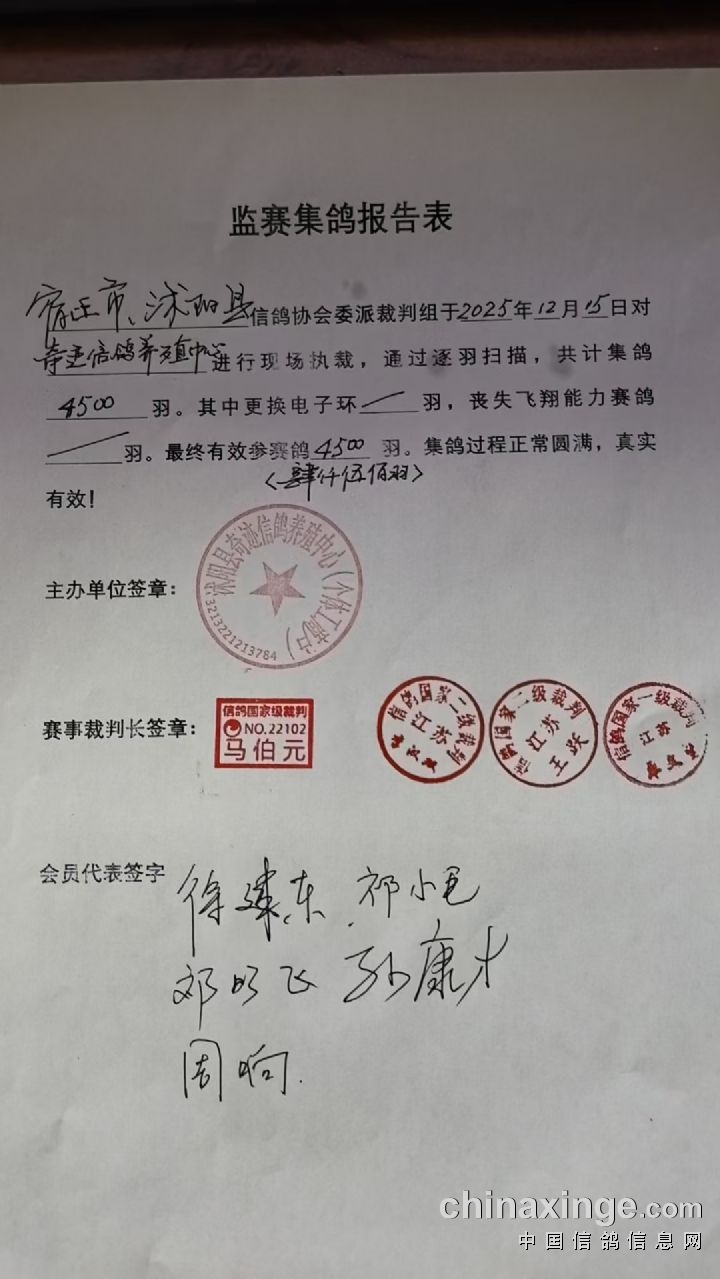 监赛集鸽报告表
宿迁市、沭阳县信鸽协会委派裁判组于2025年12月15日对
奇迹信鸽养殖中心进行现场执裁，通过逐羽扫描，共计集鸽
4500 羽。其中更换电子环 羽，丧失飞翔能力赛鸽
羽。最终有效参赛鸽4500 羽。集鸽过程正常圆满，真实
<肆仟伍佰羽>
有效！
沭阳县奇迹信鸽养殖中心（个体工商户）
3213221213784
主办单位签章：
赛事裁判长签章：
信鸽国家级裁判
NO.22102
马伯元
信鸽国家二级裁判
江苏
信鸽国家二级裁判
江苏
王跃
信鸽国家一级裁判
江苏
会员代表签字
徐建东 祁小
邓明飞 孙康才
周响.
chinaxinge.com
中国信鸽信息网